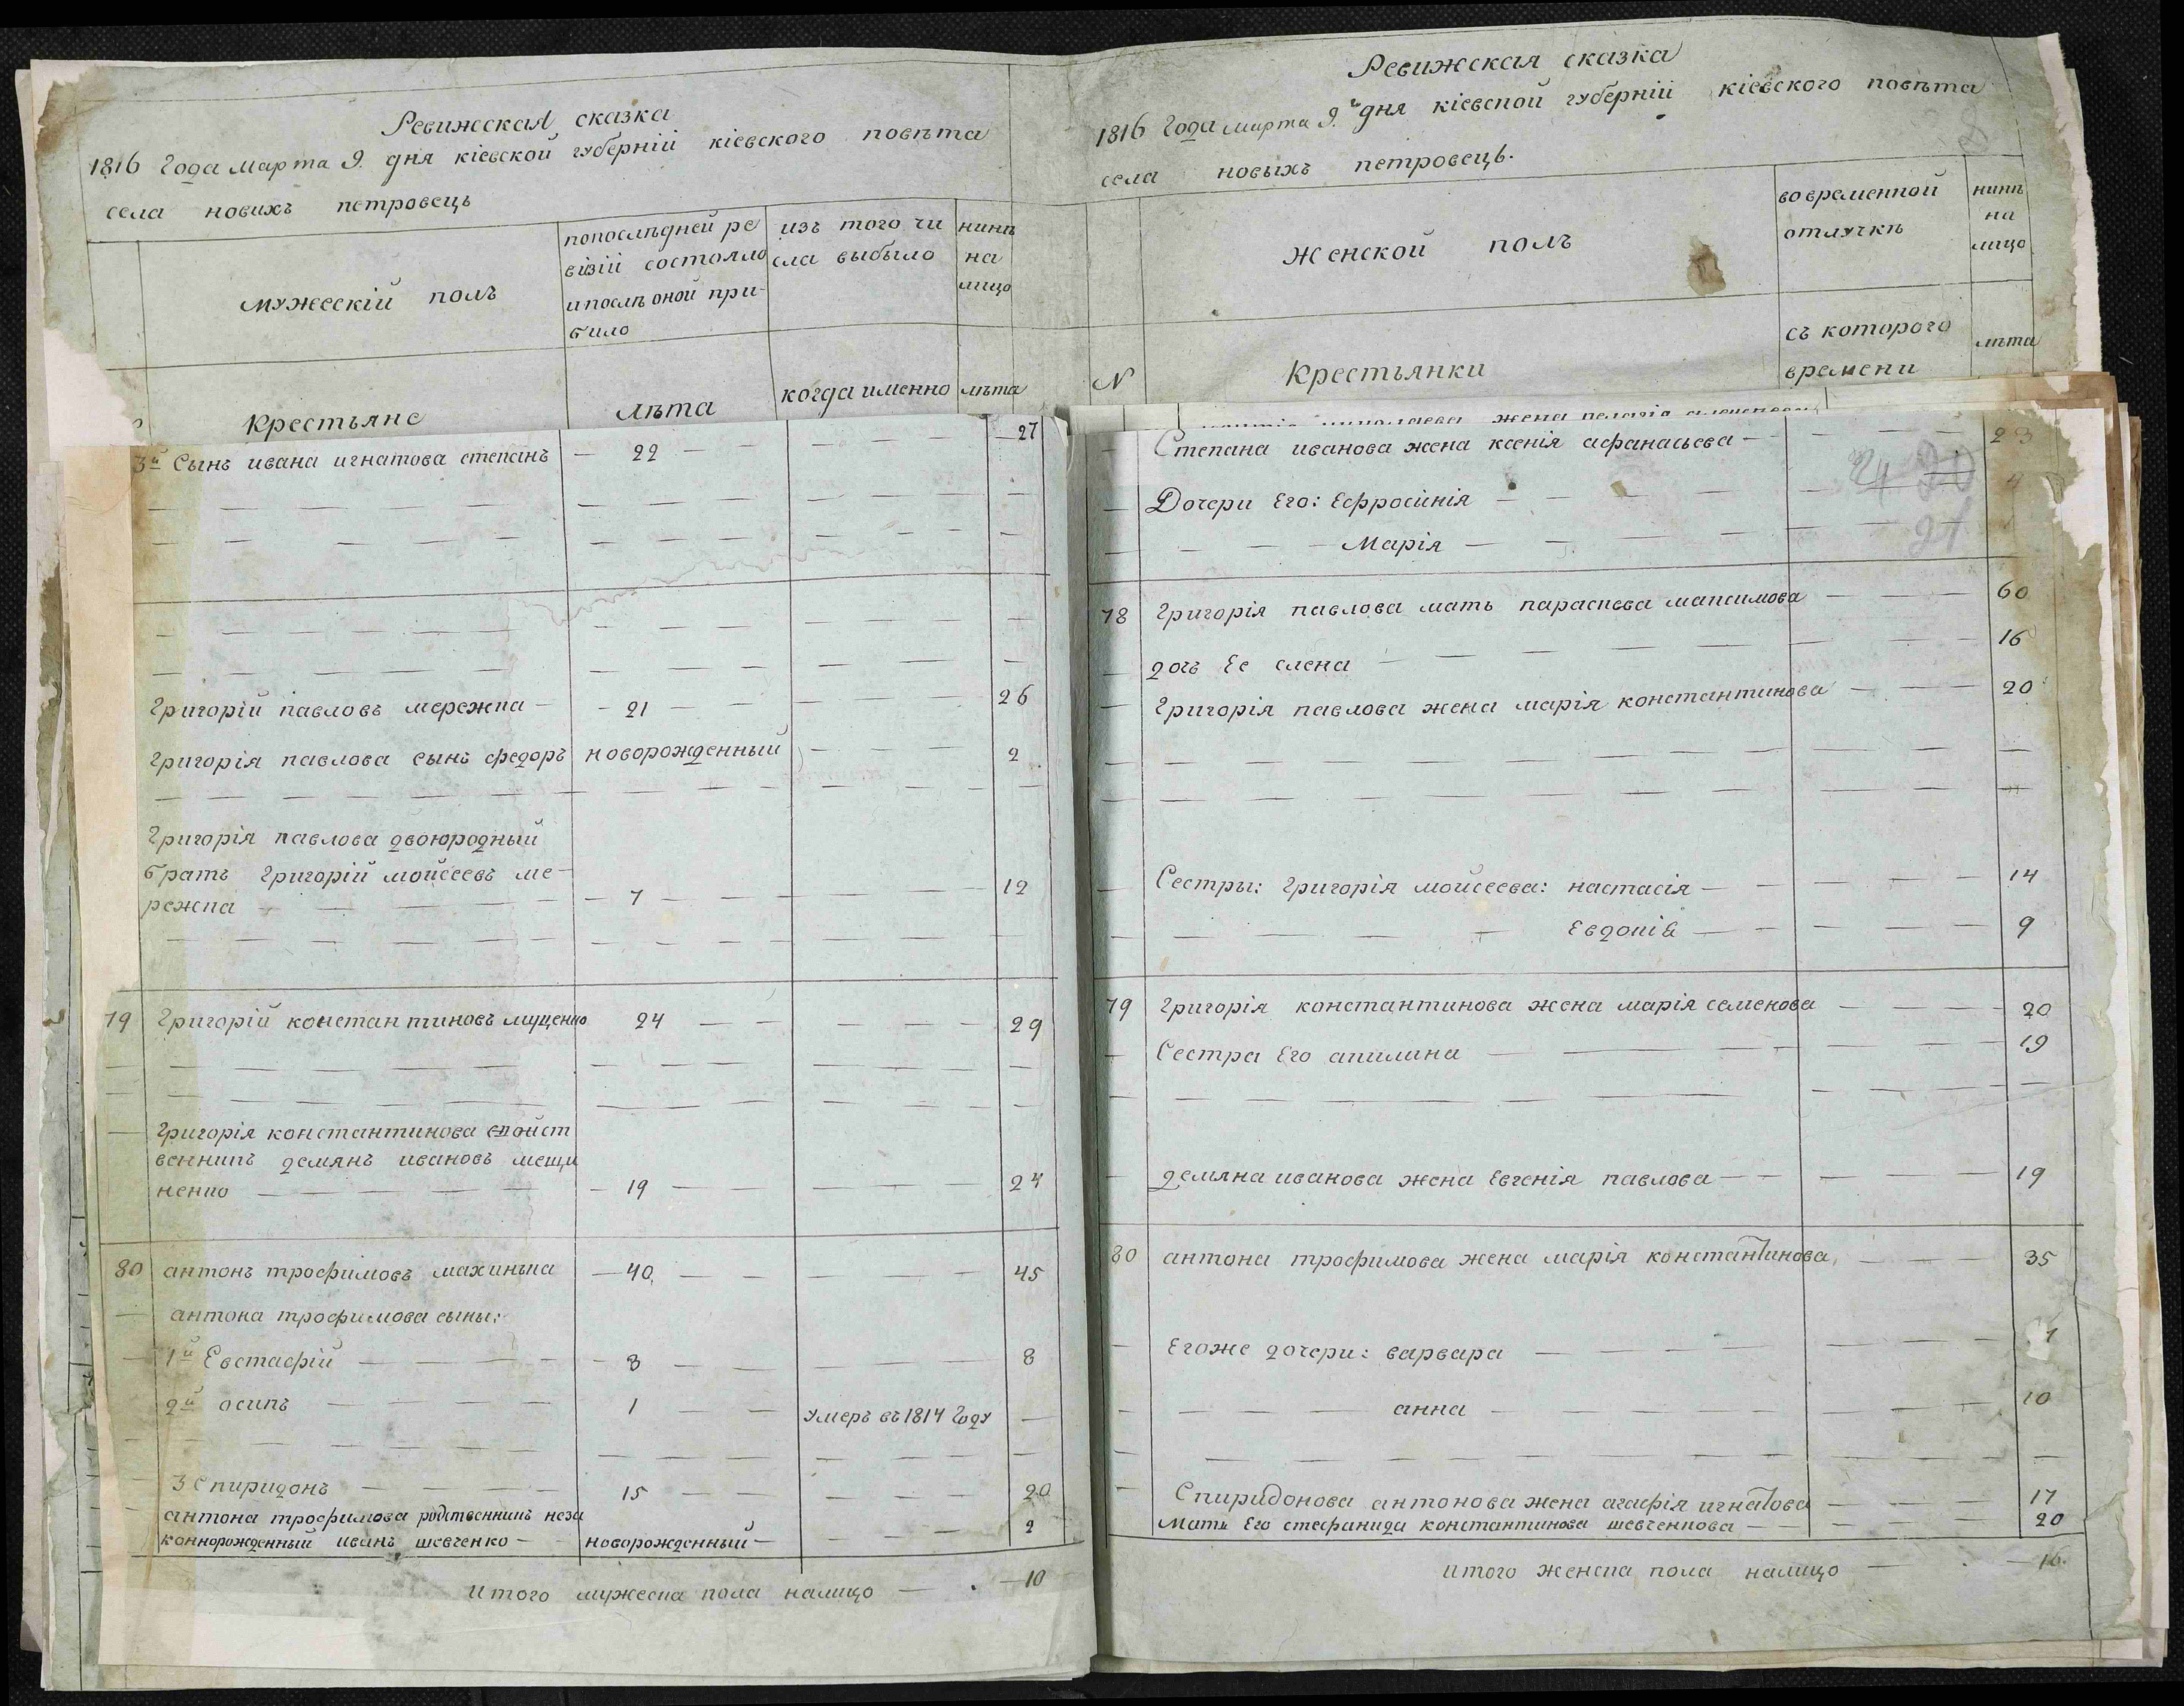 Ревижская сказка
1816 Года марта 9. дня кіевской губерніи кіевского повѣта
села новихъ петровець
мужескій полъ
попослѣдней ре
візіи состояло
и послѣ оной при-
било
изъ того чи
сла выбыло
нинѣ
на
лицо
Крестьяне
лѣта
когда именно
лѣта
3й Сынъ ивана игнатова степанъ — 22 — 27
Григорій павловъ мережка — 21 — 26
Григорія павлова сынъ федоръ новорожденный — 2
Григорія павлова двоюродный
братъ Григорій мойсеевъ ме-
режка — 7 — 12
79 Григорій константиновъ муценко 24 — 29
Григорія константинова свойст
венникъ демянъ ивановъ мещи
ненко — 19 — 24
80 антонъ трофимовъ махинька — 40 — 45
антона трофимова сыны:
1й Евстафій — 3 — 8
2й осипъ — 1 — умеръ въ 1814 Году —
3 Спиридонъ — 15 — 20
антона трофимова родственникъ неза
коннорожденный иванъ шевченко — новорожденный — 2
итого мужеска пола налицо — 10
Ревижская сказка
1816 Года марта 9.й дня кіевской губерніи кіевского повѣта
села новыхъ петровець.
Женской полъ
во временной
отлучкѣ
нинѣ
на
лицо
N
Крестьянки
съ которого
времени
лѣта
Степана иванова жена ксенія афанасьева — 23
Дочери Его: Ефросинія — 4
Марія —
24 20
21
78 Григорія павлова мать параскева максимова — 60
дочь Ее елена — 16
Григорія павлова жена марія константинова — 20
Сестры: Григорія мойсеева: настасія — 14
Евдокія — 9
79 Григорія константинова жена марія семенова — 20
Сестра Его акилина — 19
демяна иванова жена Евгенія павлова — 19
80 антона трофимова жена марія константинова — 35
Егоже дочери: варвара — 1
анна — 10
Спиридонова антонова жена агафія игнатова — 17
Мать Его стефанида константинова шевченкова — 20
итого женска пола налицо — 16.